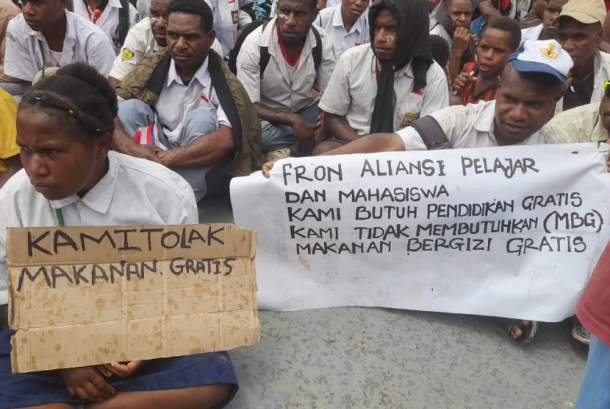 KAMI TOLAK
MAKANAN. GRATIS
FRON ALIANSI PELAJAR
DAN MAHASISWA
KAMI BUTUH PENDIDIKAN GRATIS
KAMI TIDAK MEMBUTUHKAN (MBG)
MAKANAN BERGIZI GRATIS